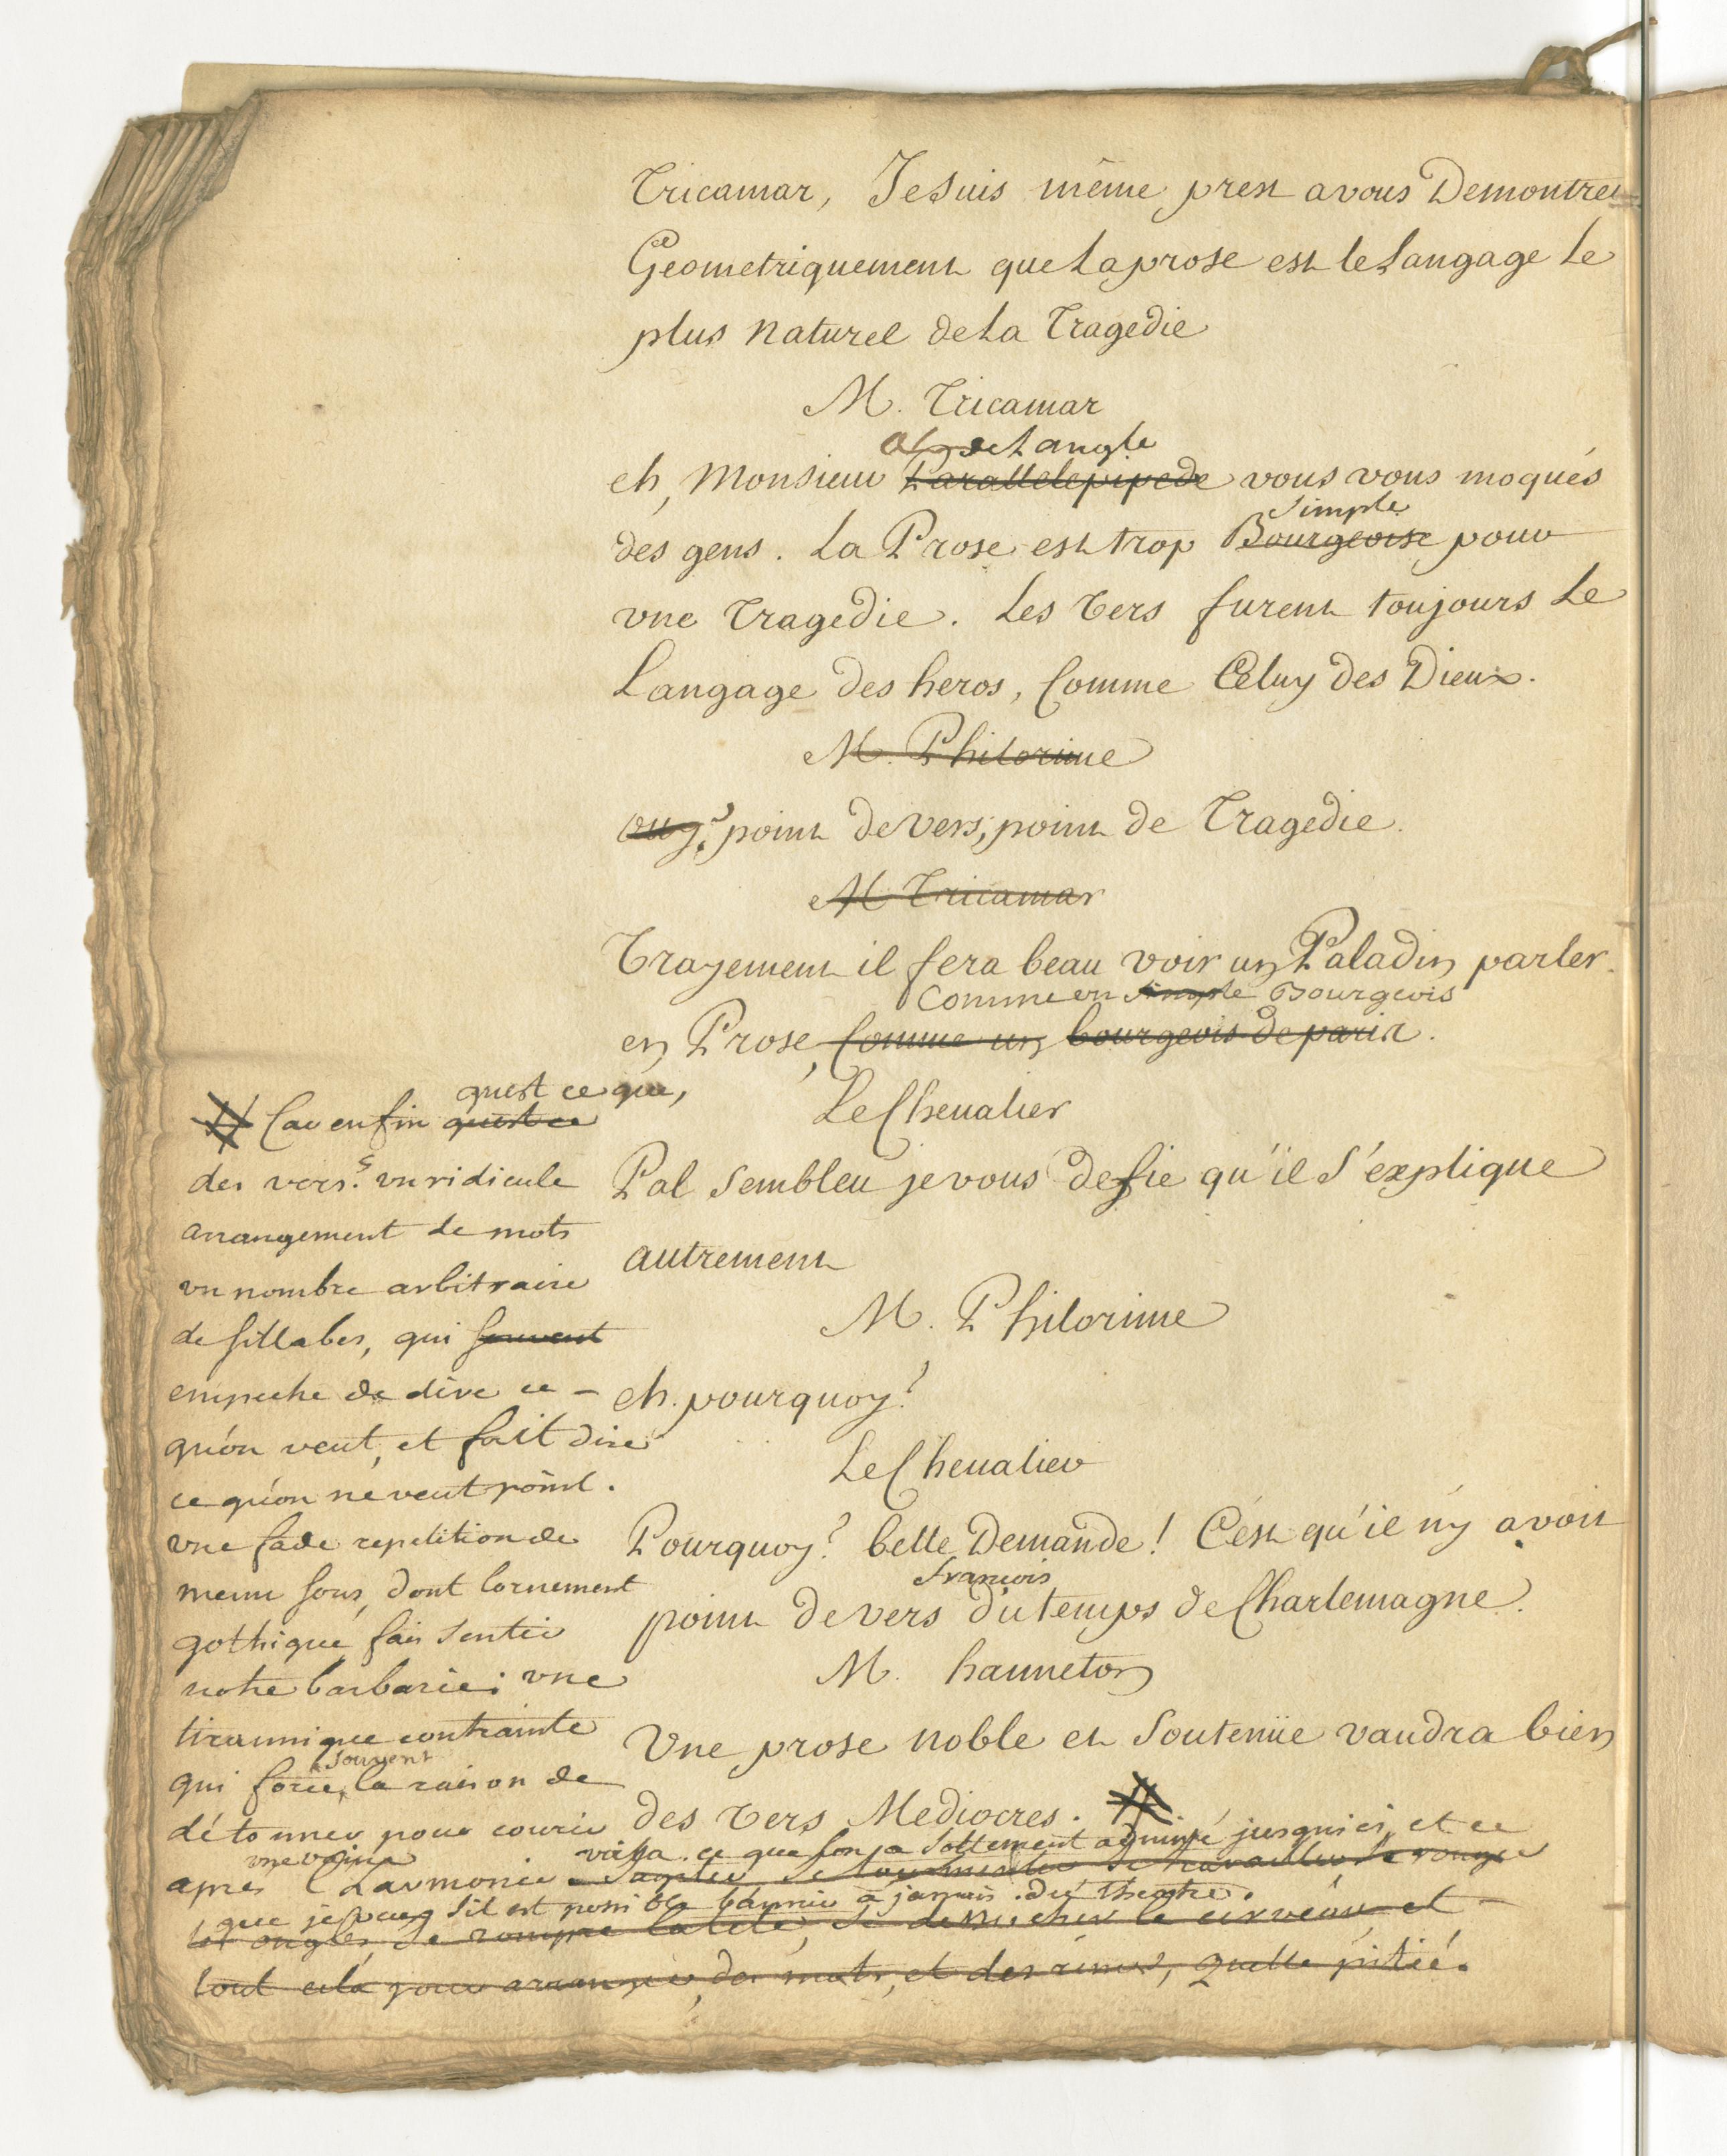 Tricamar, Je suis même prest a vous Demontrer
Geometriquement que La prose est le Langage Le
plus Naturel de La Tragedie
M. Tricamar
de Langle
eh, Monsieur Parallelepipede vous vous moqués
Simple
des gens. La Prose est trop Bourgeoise pour
vne Tragedie. Les Vers furent toujours Le
Langage des heros, Comme Celuy des Dieux.
M. Philorime
ouy, point de vers, point de Tragedie.
M Tricamar
Vrayement il fera beau voir un Paladin parler
Comme un simple Bourgeois
en Prose, Comme un bourgeois de paris.
Le Chevalier
Pal sembleu je vous defie qu'il s'explique
autrement
M. Philorime
eh. pourquoy?
Le Chevalier
Pourquoy? belle Demande! C'est qu'il n'y avoit
francois
point de vers du temps de Charlemagne.
M. hanneton
Une prose noble et Soutenüe vaudra bien
des Vers Mediocres. #
quest ce que,
# Car enfin quest ce
des vers? vn ridicule
arrangement de mots
vn nombre arbitraire
de sillabes, qui souvent
empeche de dire ce -
qu'on veut, et fait dire
ce qu'on ne veut point.
vne fade repetition de
mesme sons, dont lornement
gothique fais sentir
notre barbarie; vne
tirannique contrainte
souvent
qui force la raison de
détonner pour courir
vne vaine
apres l'harmonie
voila ce que lon a sottement admiré jusqu'ici, et ce
s'agiter se tourmenter se travailler se ronger
que je veux s'il est possible bannir a jamais du theatre.
les ongles, se rompre la tete, se dessecher le cerveau et -
tout cela pour arranger des mots, et des rimes, quelle pitié.